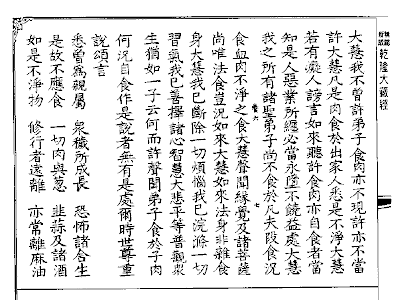 乾隆大藏經
大慧我不曾許弟子食肉亦不現許亦不當
許大慧凡是肉食於出家人悉是不淨大慧
若有癡人謗言如來聽許食肉亦自食者當
知是人惡業所纏必當永墮不饒益處大慧
我之所有諸聖弟子尚不食於凡夫段食況
卷六 七
食血肉不淨之食大慧聲聞緣覺及諸菩薩
尚唯法食豈況如來大慧如來法身非雜食
身大慧我已斷除一切煩惱我已浣滌一切
習氣我已善擇諸心智慧大悲平等普觀衆
生猶如一子云何而許聲聞弟子食於子肉
何況自食作是說者無有是處爾時世尊重
說頌言
悉曾爲親屬 衆穢所成長 恐怖諸含生
是故不應食 一切肉與葱 韭蒜及諸酒
如是不淨物 修行者遠離 亦常離麻油